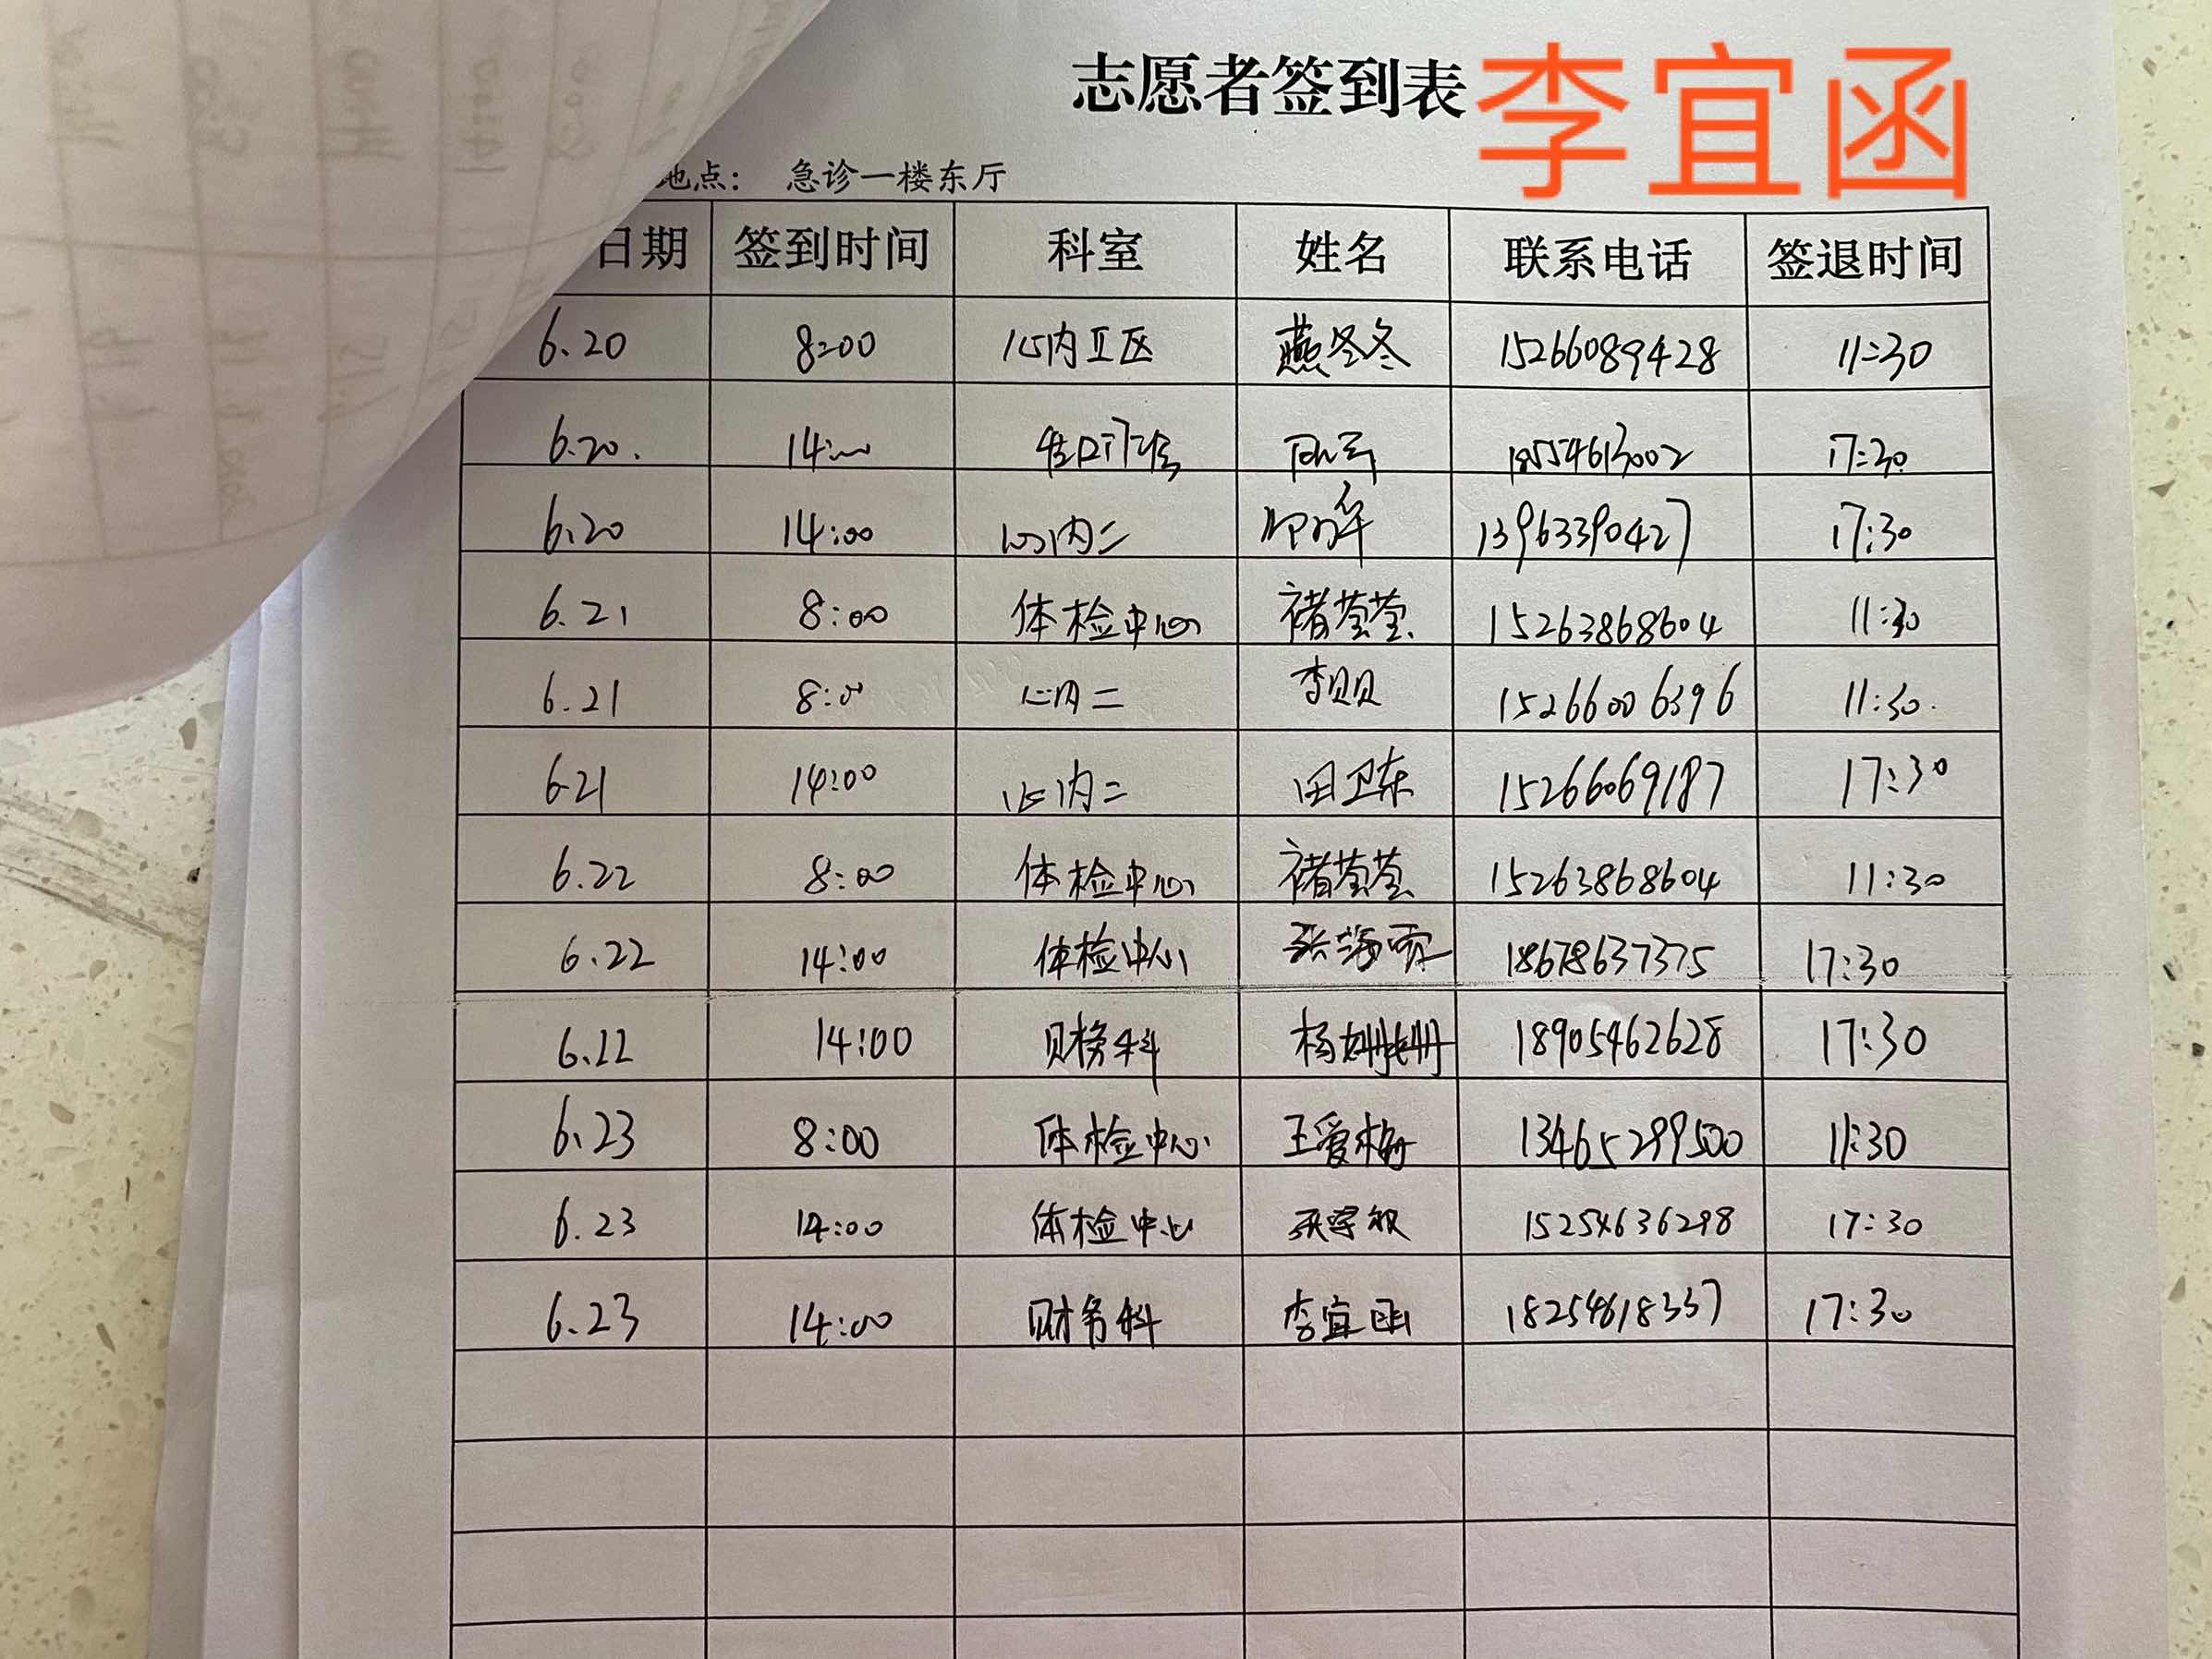 志愿者签到表 李宜函
地点： 急诊一楼东厅
日期 签到时间 科室 姓名 联系电话 签退时间
6.20 8:00 心内Ⅱ区 燕冬冬 15266089428 11:30
6.20. 14:00 18554613002 17:30
6.20 14:00 心内二 13963390427 17:30
6.21 8:00 体检中心 褚莹莹 15263868604 11:30
6.21 8:00 心内二 李贝贝 15266006396 11:30.
6.21 14:00 心内二 田卫东 15266069187 17:30
6.22 8:00 体检中心 褚莹莹 15263868604 11:30
6.22 14:00 体检中心 张海霞 18678637375 17:30
6.22 14:00 财务科 杨姗姗 18905462628 17:30
6.23 8:00 体检中心 王爱梅 13465299500 11:30
6.23 14:00 体检中心 15254636298 17:30
6.23 14:00 财务科 李宜函 18254618337 17:30